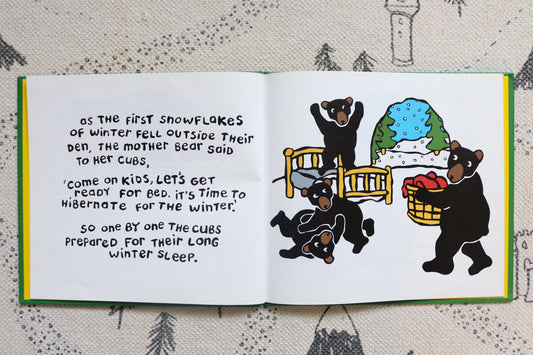 AS THE FIRST SNOWFLAKES
OF WINTER FELL OUTSIDE THEIR
DEN, THE MOTHER BEAR SAID
TO HER CUBS,
'COME ON KIDS, LET'S GET
READY FOR BED. IT'S TIME TO
HIBERNATE FOR THE WINTER.'
SO ONE BY ONE THE CUBS
PREPARED FOR THEIR LONG
WINTER SLEEP.